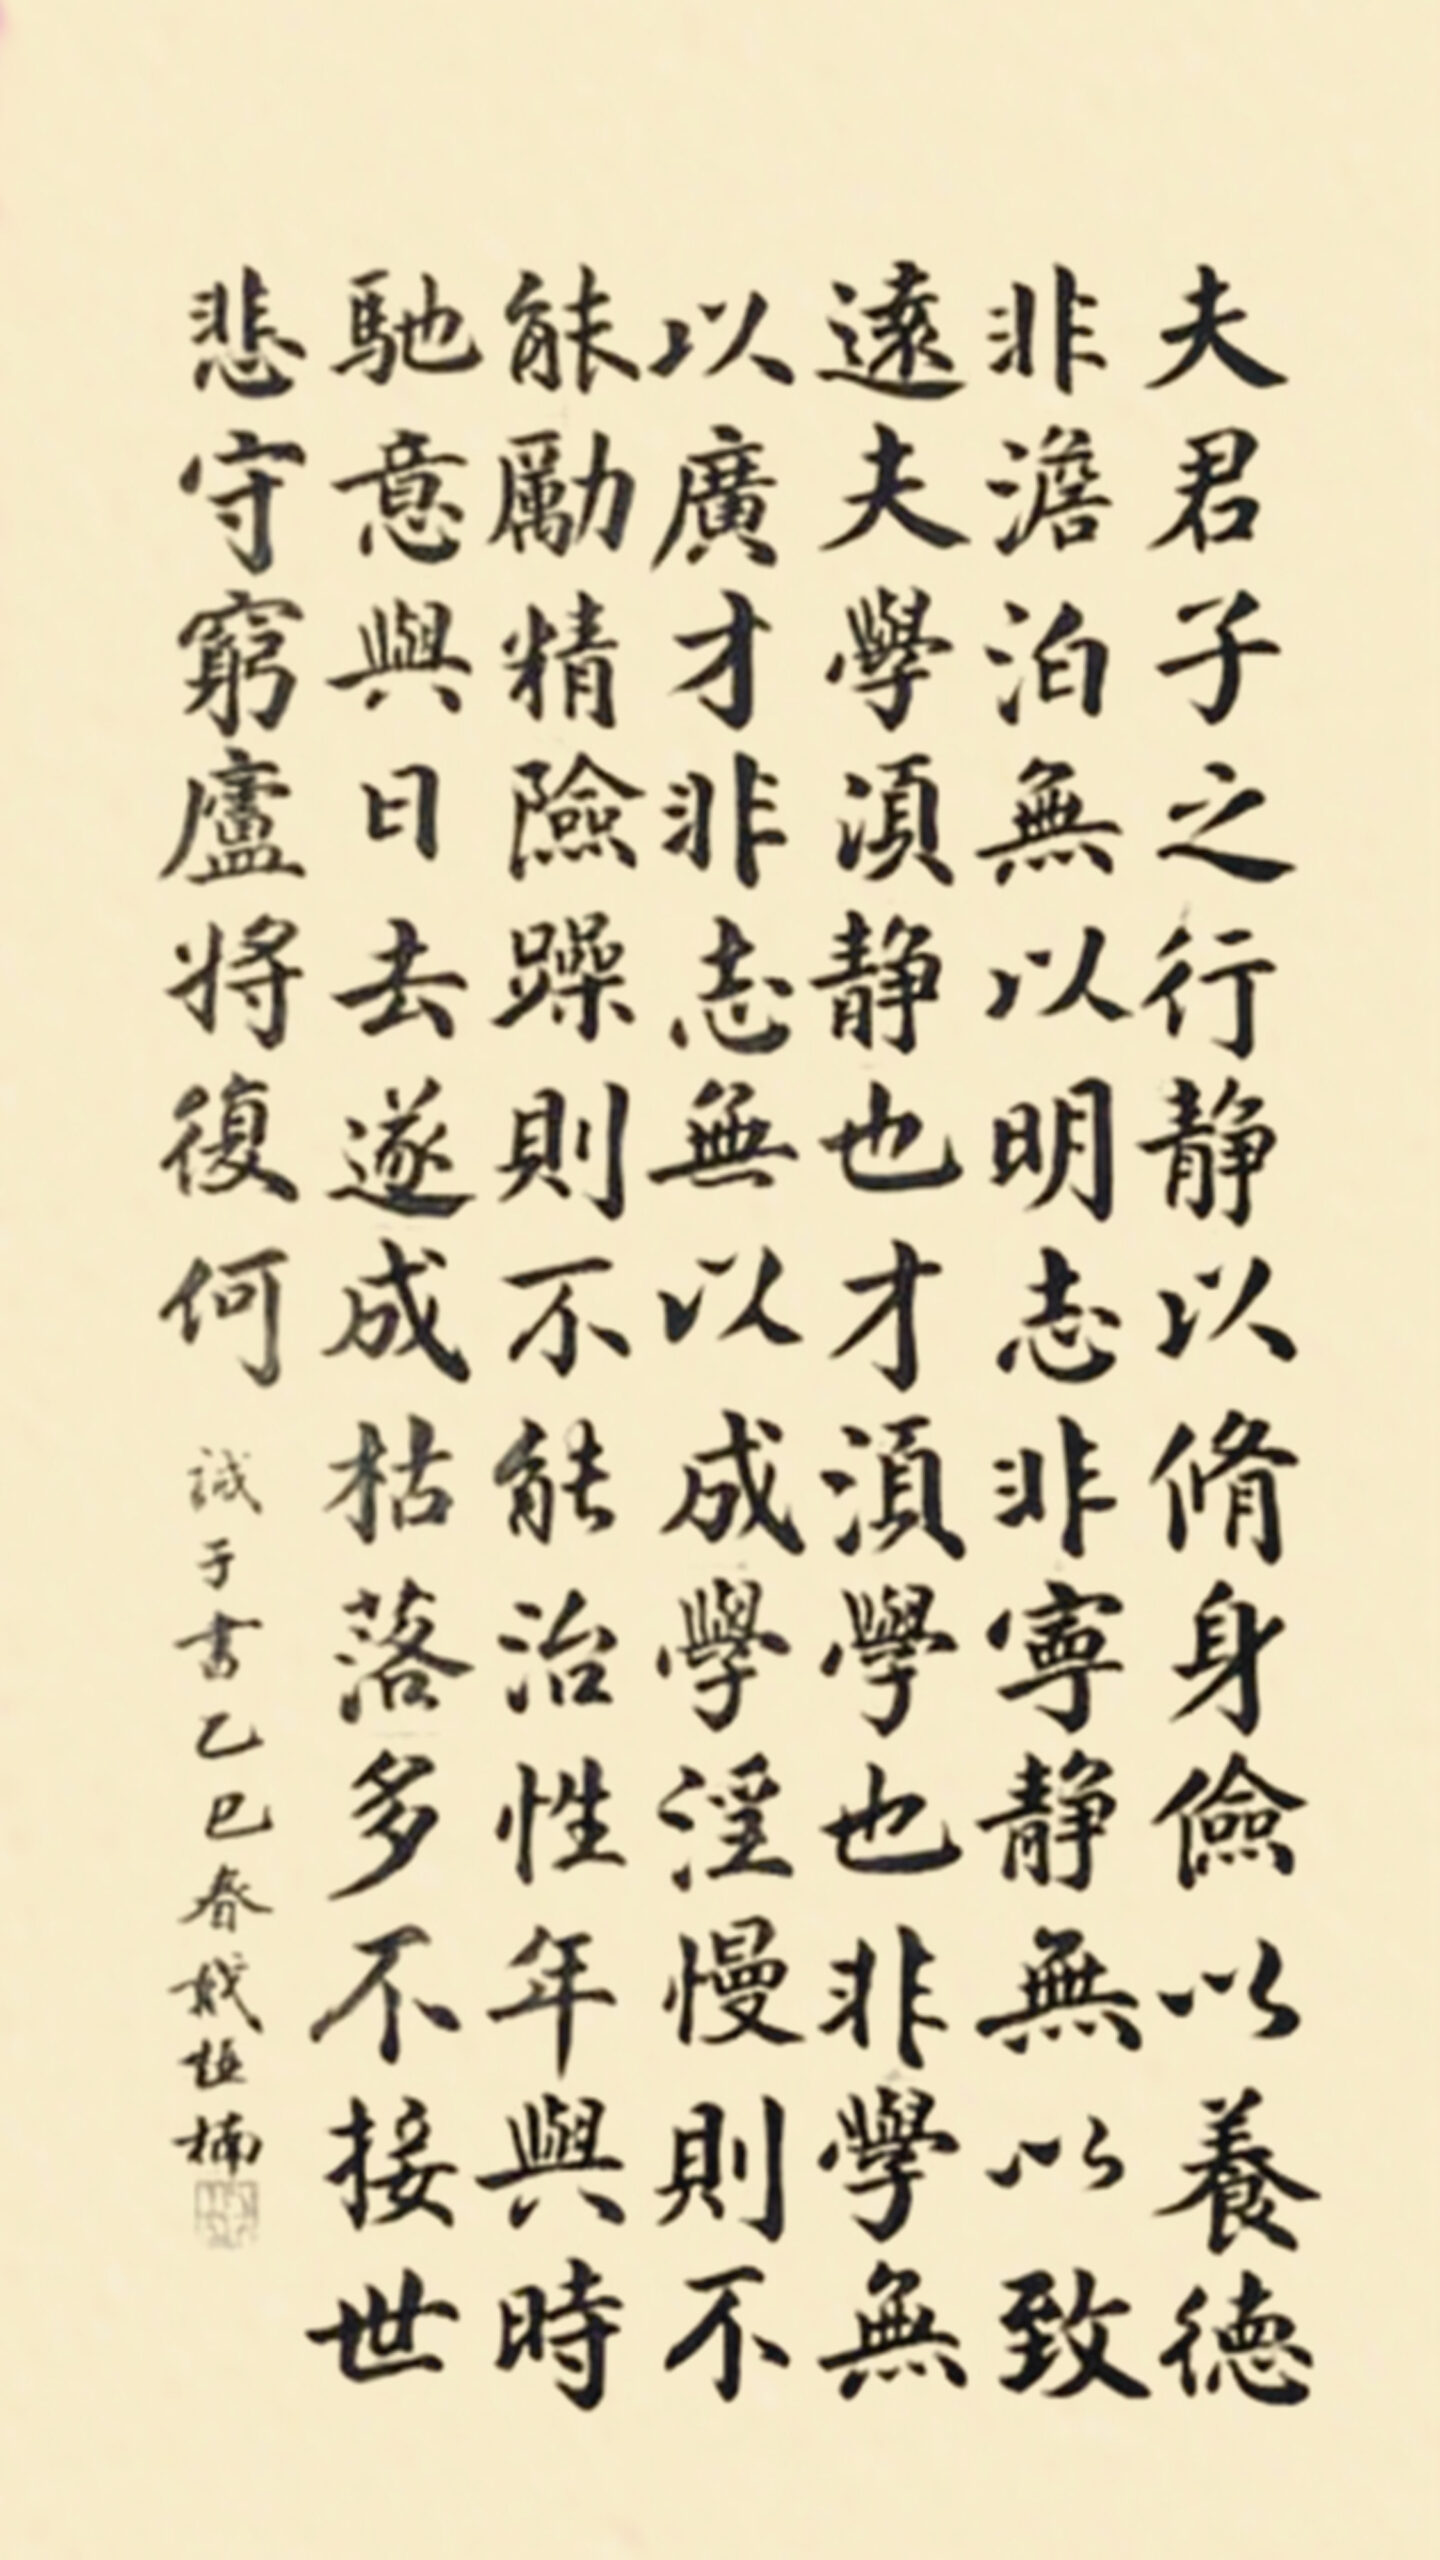 夫君子之行靜以脩身儉以養德
非澹泊無以明志非寧靜無以致
遠夫學湏靜也才湏學也非學無
以廣才非志無以成學淫慢則不
能勵精險躁則不能治性年與時
馳意與日去遂成枯落多不接世
悲守窮廬將復何
誡子書乙巳春戏楠